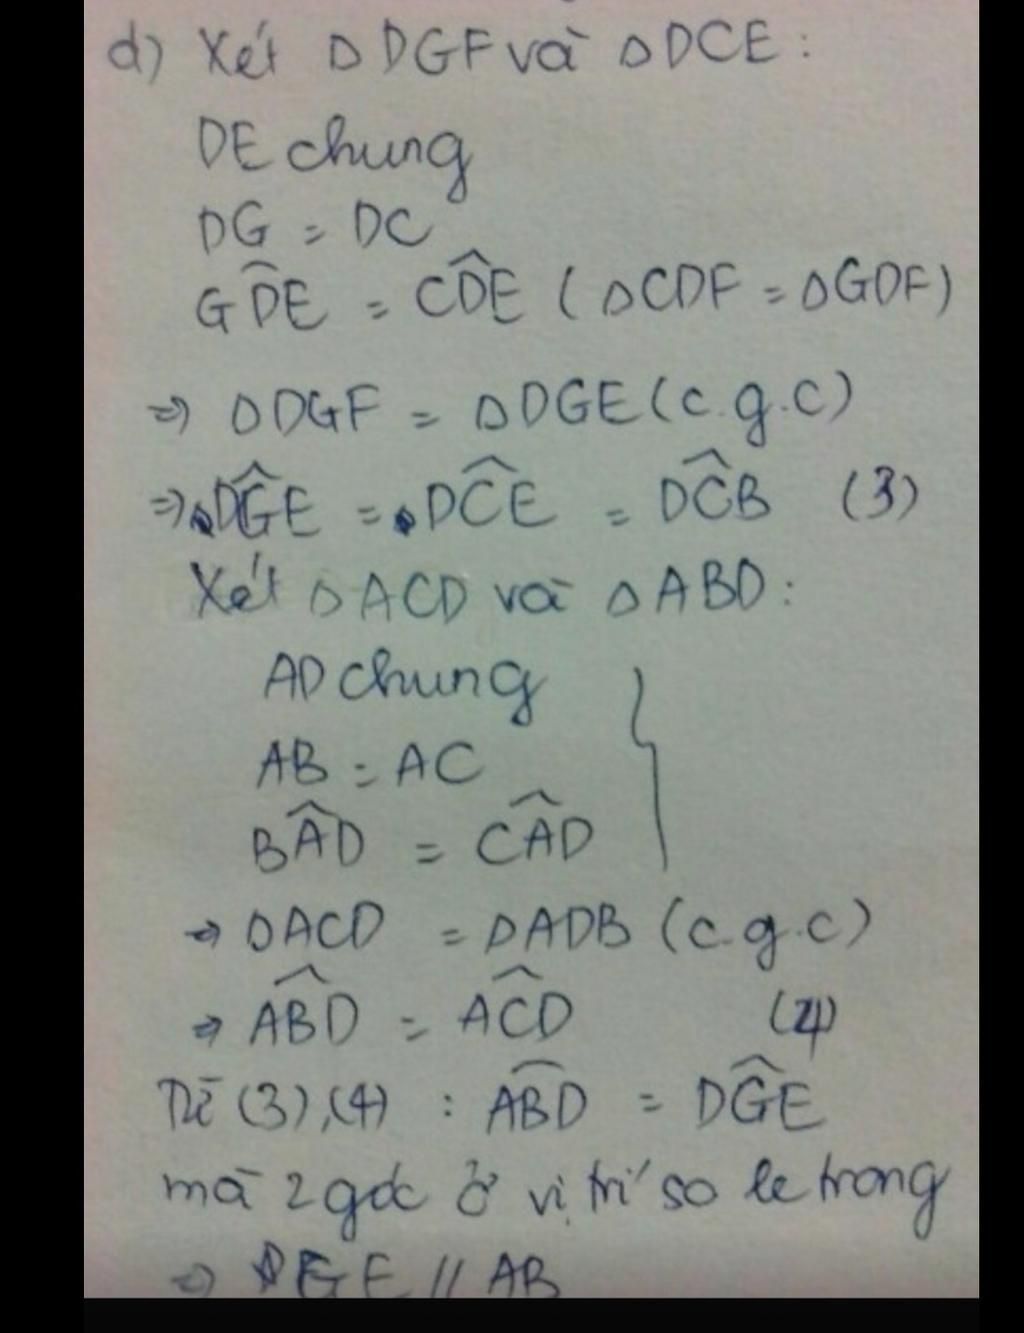 d) Xét Δ DGF và Δ DCE :
DE chung
DG = DC
GD̂E = CD̂E ( ΔCDF = ΔGDF)
⇒ ΔDGF = ΔDGE (c.g.c)
⇒ DĜE = DĈE = DĈB (3)
Xét ΔACD và ΔABD :
AD chung
AB = AC
BÂD = CÂD
⇒ ΔACD = ΔADB (c.g.c)
⇒ AB̂D = AĈD (4)
Từ (3),(4) : AB̂D = DĜE
mà 2 góc ở vị trí so le trong
⇒ GE // AB